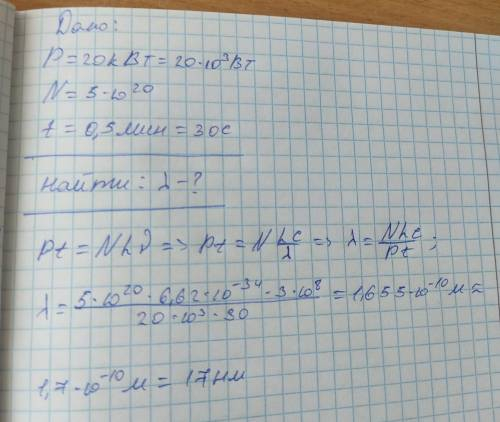 Дано:
P = 20кВт = 20·10³Вт
N = 5·10²⁰
t = 0,5мин = 30с
Найти: λ - ?
Pt = Nhν => Pt = N hc/λ => λ = Nhc/Pt ;
λ = 5·10²⁰ · 6,62·10⁻³⁴ · 3·10⁸ / 20·10³ · 30 = 1,655·10⁻¹⁰ м =
1,7·10⁻¹⁰ м = 17нм